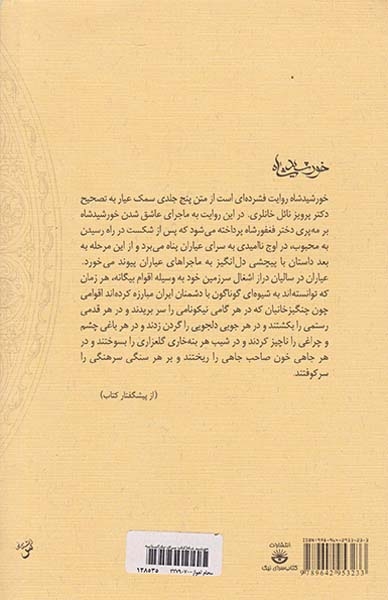 خورشیدشاه
خورشیدشاه روایت فشرده‌ای است از متن پنج جلدی سمک عیار به تصحیح
دکتر پرویز ناتل خانلری. در این روایت به ماجرای عاشق شدن خورشیدشاه
بر مه‌پری دختر فغفورشاه پرداخته می‌شود که پس از شکست در راه رسیدن
به محبوب، در اوج ناامیدی به سرای عیاران پناه می‌برد و از این مرحله به
بعد داستان با پیچشی دل‌انگیز به ماجراهای عیاران پیوند می‌خورد.
عیاران در سالیان دراز اشغال سرزمین خود به وسیله اقوام بیگانه، هر زمان
که توانسته‌اند به شیوه‌ای گوناگون با دشمنان ایران مبارزه کرده‌اند اقوامی
چون چنگیزخانیان که در هر گامی نیکونامی را سر بریدند و در هر قدمی
رستمی را بکشتند و در هر جویی دلجویی را گردن زدند و در هر باغی چشم
و چراغی را ناچیز کردند و در شیب هر بنه‌خاری گلعزاری را بسوختند و در
هر جاهی خون صاحب جاهی را ریختند و بر هر سنگی سرهنگی را
سرکوفتند.
(از پیشگفتار کتاب)
۱۲۸۵۳۵
انتشارات
کتاب‌سرای نیک
9789642953233